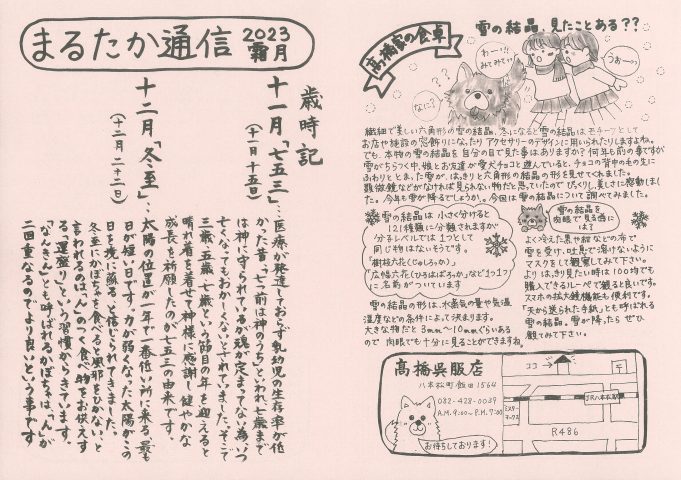 まるたか通信 2023 霜月
歳時記
十一月「七五三」
(十一月十五日)
…医療が発達しておらず乳幼児の生存率が低
かった昔、"七つ前は神のうち"といわれ七歳まで
は神に守られているが魂が定まってない為、いつ
亡くなってもおかしくないとされていました。そこで
三歳、五歳、七歳という節目の年を迎えると
晴れ着を着せて神様に感謝し健やかな
成長を祈願したのが七五三の由来です。
十二月「冬至」
(十二月二十二日)
…太陽の位置が一年で一番低い所に来る、最も
日が短い日です。力が弱くなった太陽がこの
日を境に蘇ると信じられてきました。
冬至にかぼちゃを食べると風邪をひかない、と
言われるのは、「ん」のつく食べ物をお供えす
る「運盛り」という習慣からきています。
「なんきん」とも呼ばれるかぼちゃは、「ん」が
二回重なるのでより良いという事です
髙橋家の食卓
雪の結晶、見たことある??
わーい!!
みてみてぃ
うわーっ
なに?
??
繊細で美しい六角形の雪の結晶。冬になると雪の結晶はモチーフとして
お店や施設の窓飾りになったりアクセサリーのデザインに用いられたりしますよね。
でも、本物の雪の結晶を自分の目で見た事はありますか?何年も前の事ですが
雪がちらつく中、娘とお友達が愛犬チョコと遊んでいると、チョコの背中のもの上に
ふわりととまった雪が、はっきりと六角形の結晶の形を見せてくれました。
顕微鏡などがなければ見られない物だと思っていたのでびっくりし、美しさに感動しまし
た。今年も雪が降るでしょうか。今回は雪の結晶について調べてみました。
雪の結晶は 小さく分けると
121種類に分類できますが
分子レベルでは1つとして
同じ物はないそうです。
"樹枝六花(じゅしろっか)"
"広幅六花(ひろはばろっか)"など1つ1つ
に名前がついています
雪の結晶の形は、水蒸気の量や気温、
湿度などの条件によって決まります。
大きな物だと3mm〜10mmぐらいある
ので 肉眼でも十分に見ることができますね。
雪の結晶を
肉眼で見る為に
は?
よく冷えた黒や紺などの布で
雪を受け、吐息で溶けないように
マスクをして観察してみて下さい。
よりはっきり見たい時は100均でも
購入できるルーペで観ると良いです。
スマホの拡大鏡機能も便利です。
「天から送られた手紙」とも呼ばれる
雪の結晶。雪が降ったら ぜひ
観てみて下さい。
髙橋呉服店
八本松町飯田1564
082-428-0039
A.M.9:00〜P.M.7:00
お待ちしております!
ココ→
JR八本松駅
R486